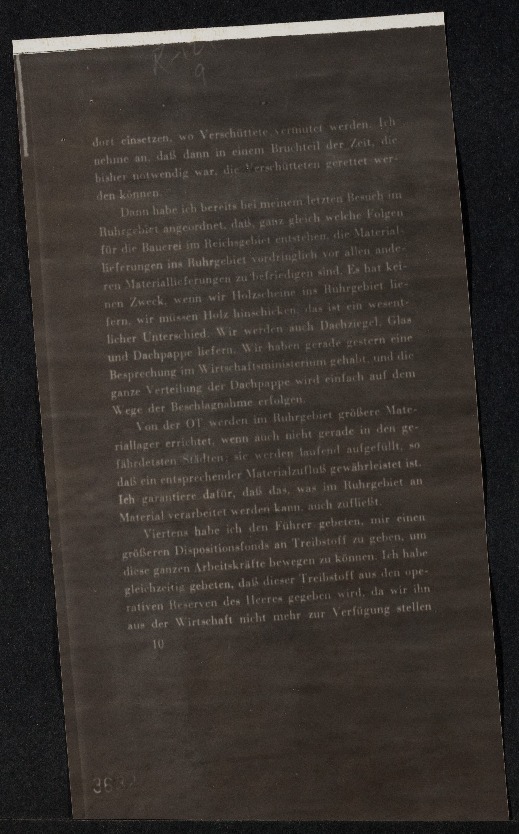 9
dort einsetzen, wo Verschüttete vermutet werden. Ich
nehme an, daß dann in einem Bruchteil der Zeit, die
bisher notwendig war, die Verschütteten gerettet wer-
den können.
Dann habe ich bereits bei meinem letzten Besuch im
Ruhrgebiet angeordnet, daß, ganz gleich welche Folgen
für die Bauerei im Reichsgebiet entstehen, die Material-
lieferungen ins Ruhrgebiet vordringlich vor allen ande-
ren Materiallieferungen zu befriedigen sind. Es hat kei-
nen Zweck, wenn wir Holzscheine ins Ruhrgebiet lie-
fern, wir müssen Holz hinschicken, das ist ein wesent-
licher Unterschied. Wir werden auch Dachziegel, Glas
und Dachpappe liefern. Wir haben gerade gestern eine
Besprechung im Wirtschaftsministerium gehabt, und die
ganze Verteilung der Dachpappe wird einfach auf dem
Wege der Beschlagnahme erfolgen.
Von der OT werden im Ruhrgebiet größere Mate-
riallager errichtet, wenn auch nicht gerade in den ge-
fährdetsten Städten; sie werden laufend aufgefüllt, so
daß ein entsprechender Materialzufluß gewährleistet ist.
Ich garantiere dafür, daß das, was im Ruhrgebiet an
Material verarbeitet werden kann, auch zufließt.
Viertens habe ich den Führer gebeten, mir einen
größeren Dispositionsfonds an Treibstoff zu geben, um
diese ganzen Arbeitskräfte bewegen zu können. Ich habe
gleichzeitig gebeten, daß dieser Treibstoff aus den ope-
rativen Reserven des Heeres gegeben wird, da wir ihn
aus der Wirtschaft nicht mehr zur Verfügung stellen
10